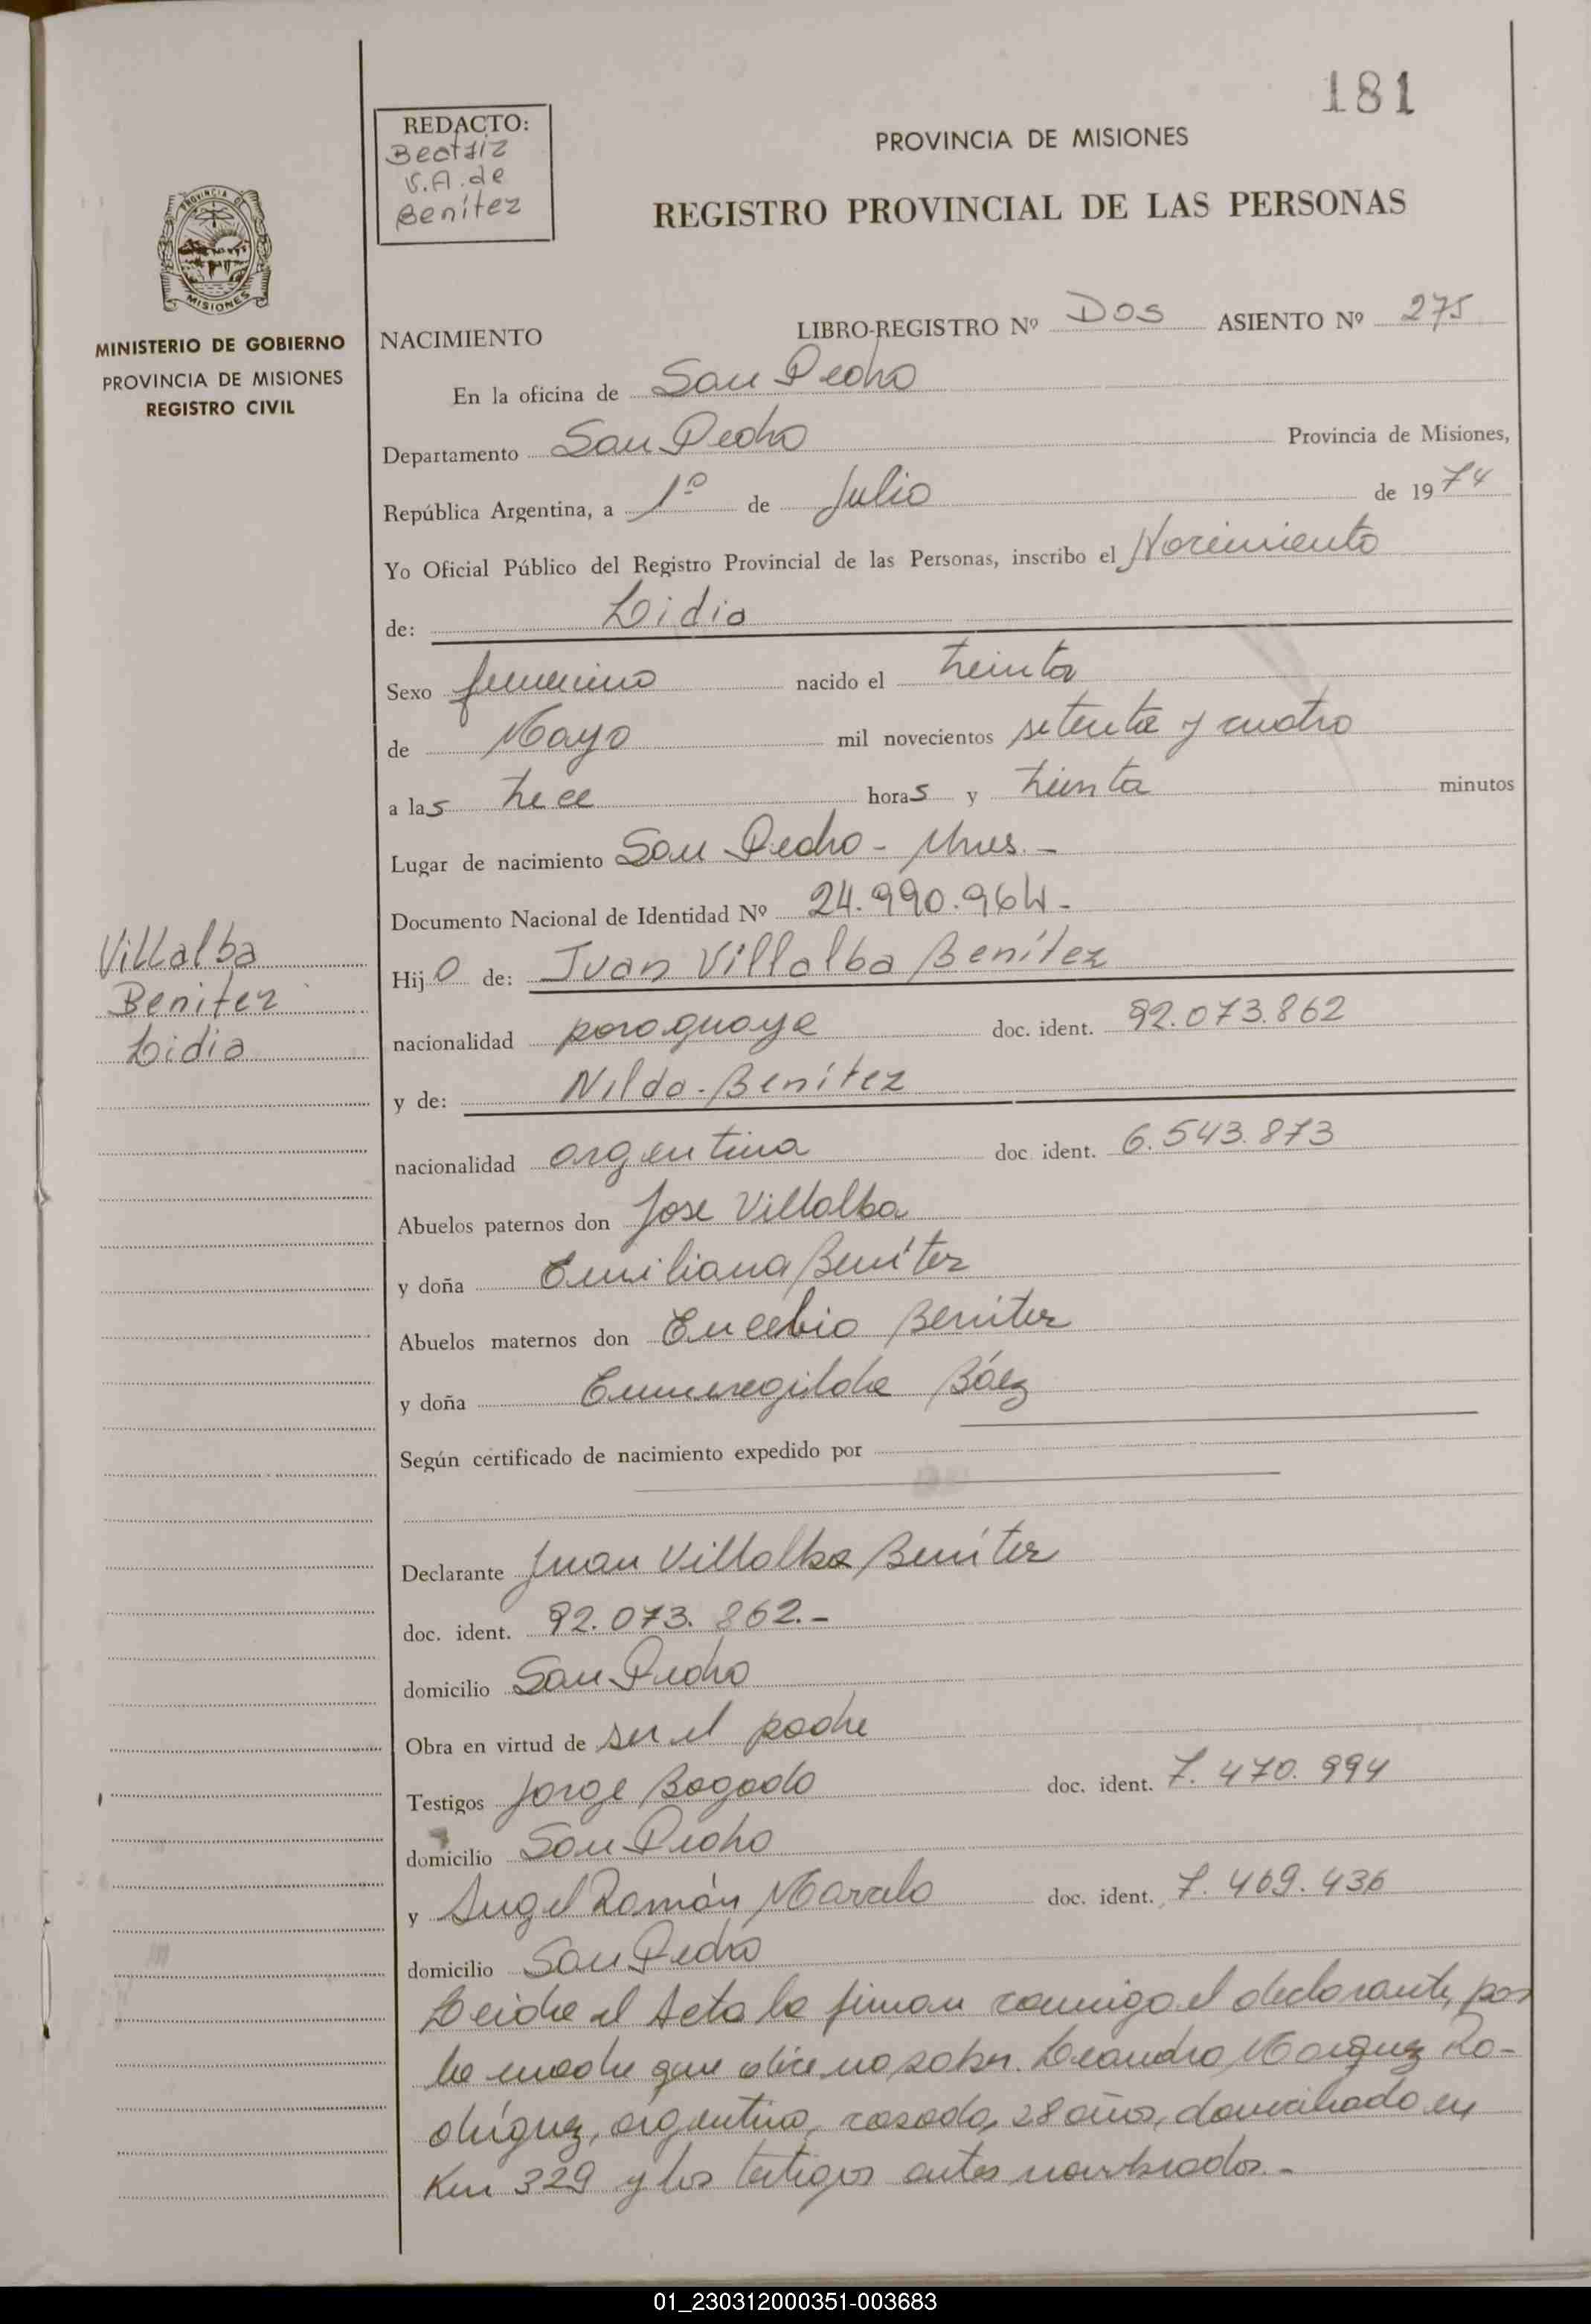 181
REDACTO:
Beatriz
V.A. de
Benítez
PROVINCIA DE MISIONES
REGISTRO PROVINCIAL DE LAS PERSONAS
PROVINCIA DE
MISIONES
MINISTERIO DE GOBIERNO
PROVINCIA DE MISIONES
REGISTRO CIVIL
NACIMIENTO LIBRO-REGISTRO Nº DOS ASIENTO Nº 275
En la oficina de San Pedro
Departamento San Pedro Provincia de Misiones,
República Argentina, a 1º de Julio de 1974
Yo Oficial Público del Registro Provincial de las Personas, inscribo el Nacimiento
de: Lidia
Sexo femenino nacido el treinta
de Mayo mil novecientos setenta y cuatro
a las trece horas y treinta minutos
Lugar de nacimiento San Pedro - Mnes. -
Documento Nacional de Identidad Nº 24.990.964.-
Villalba
Benitez
Lidia
Hijo de: Juan Villalba Benítez
nacionalidad paraguaya doc. ident. 92.073.862
y de: Nilda Benítez
nacionalidad argentina doc. ident. 6.543.873
Abuelos paternos don Jose Villalba
y doña Emiliana Benítez
Abuelos maternos don Eucebio Benítez
y doña Ermeregilda Báez
Según certificado de nacimiento expedido por
Declarante Juan Villalba Benítez
doc. ident. 92.073.862.-
domicilio San Pedro
Obra en virtud de ser el padre
Testigos Jorge Bogado doc. ident. 7.470.994
domicilio San Pedro
y Angel Ramón Marcelo doc. ident. 7.469.436
domicilio San Pedro
Leida el Acta la firman conmigo el declarante, por
la madre que dice no saber. Leandro Marquez Ro-
dríguez, argentino, casado, 28 años, domiciliado en
Km 329 y los testigos antes nombrados.-
01_230312000351-003683